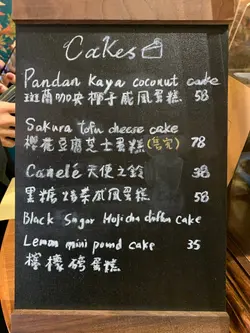 Cakes
Pandan Kaya coconut cake
斑蘭咖央椰子戚風蛋糕 58
Sakura tofu cheese cake
櫻花豆腐芝士蛋糕 78
Canelé 天使之鈴 38
黑糖焙茶戚風蛋糕 58
Black Sugar Hojicha chiffon cake
Lemon mini pound cake 35
檸檬磅蛋糕